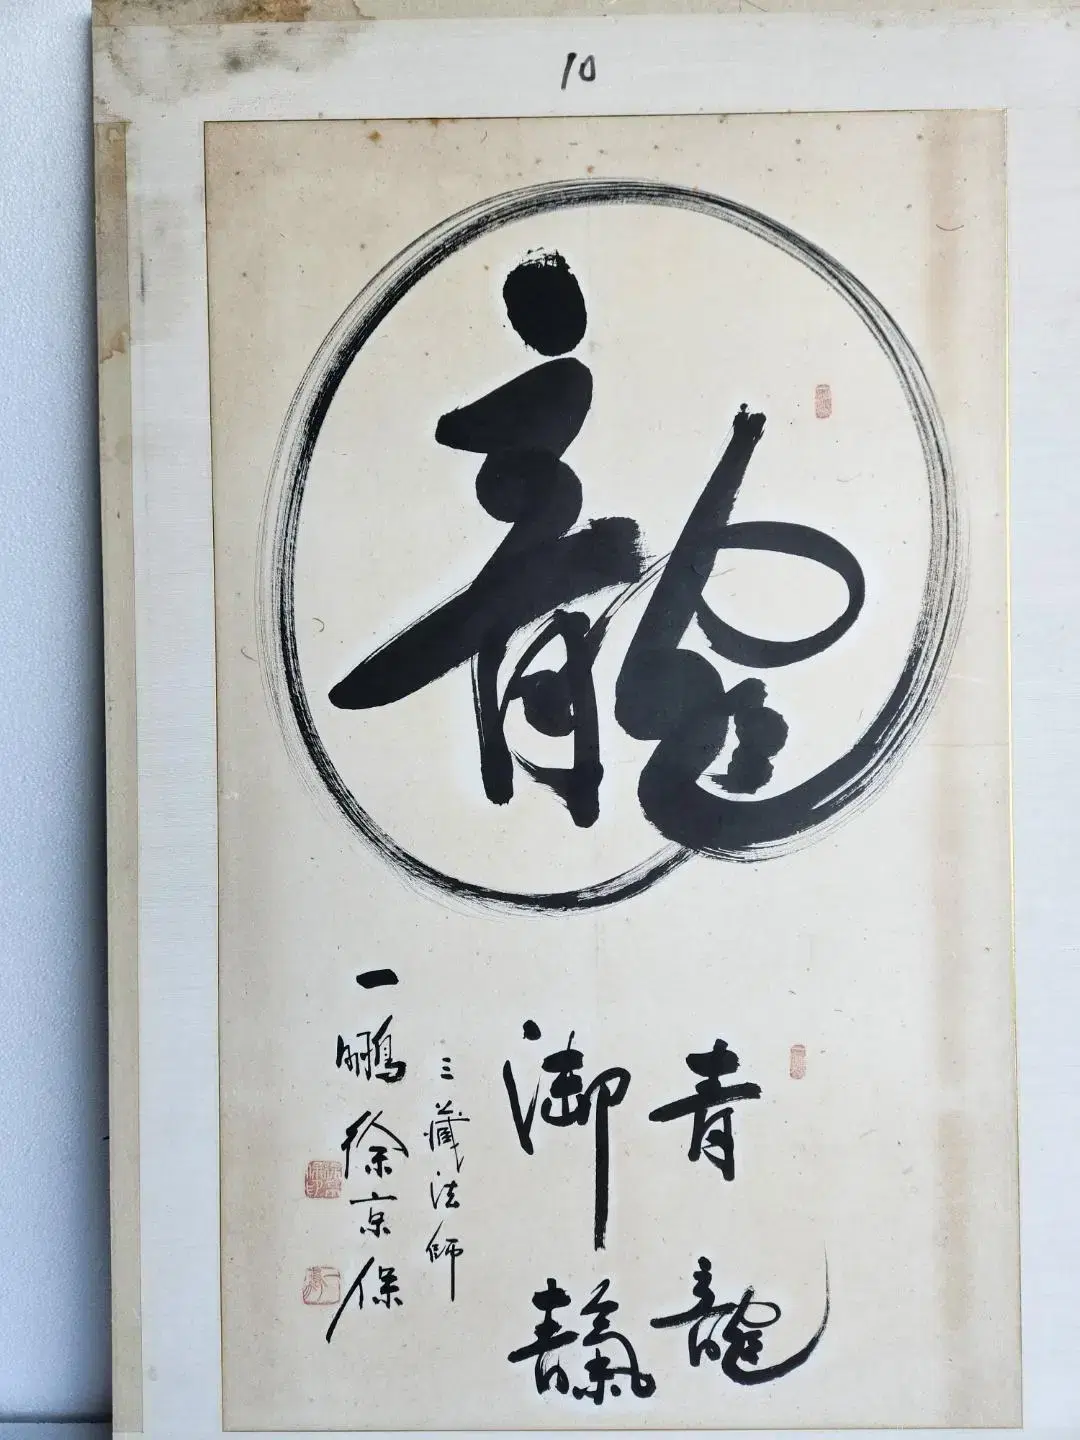 10
龍
青龍
御靝
三藏法師
一鵬徐京保